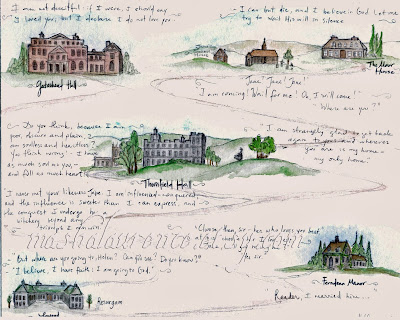 I am not deceitful: if I were, I should say
I loved you, but I declare I do not love you
Gateshead Hall
I can but die, and I believe in God. Let me
try to wait His will in silence.
The Moor
House
"Jane! Jane! Jane!"
I am coming! Wait for me! Oh, I will come!"
"Where are you?"
- Do you think, because I am
poor, obscure and plain,
am soulless and heartless?
You think wrong! - I have
as much soul as you -
and full as much heart!
Thornfield Hall
I am strangely glad to get back
again to you: and wherever
you are is my home -
my only home.
I never met your likeness. Jane, I am influenced - conquered
and the influence is sweeter than I can express, and
the conquest I undergo has a
witchery beyond any
triumph I can win.
mashalaurence
"Choose then, sir - her who loves you best
Ferndean Manor
Reader, I married him...
"But where are you going to, Helen? Can you see? Do you know?"
"I believe; I have faith: I am going to God."
Lowood
Resurgam